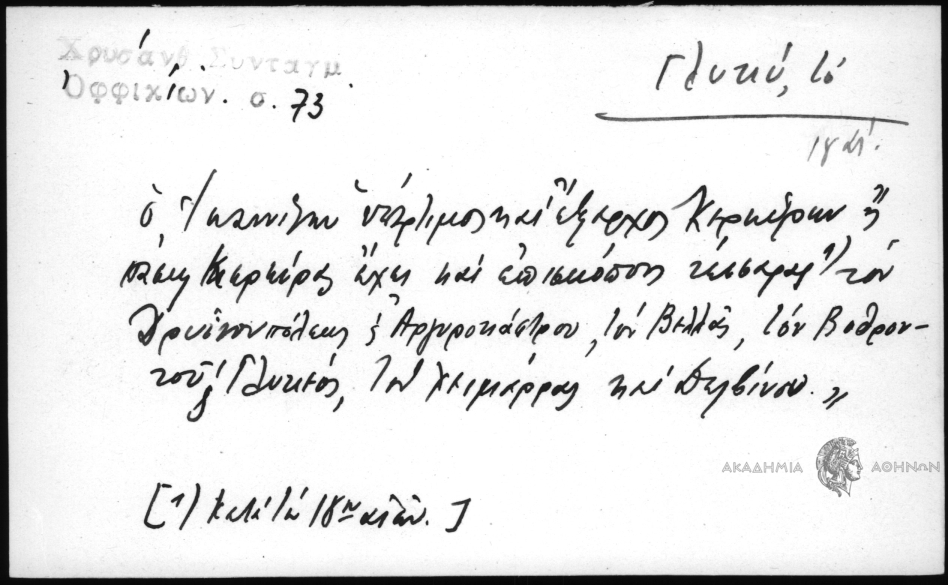 Χρυσάνθ. Συνταγμ
Ὀφφικίων. σ. 73
Γλυκύ, τό
18 αἰ.
ὁ Ἰωαννίνων ὑπέρτιμος καὶ ἔξαρχος Κερκύρων ἢ
πάσης Κερκύρας ἔχει καὶ ἐπισκόπους τέσσαρας 1) τὸν
Δρυϊνουπόλεως ἢ Ἀργυροκάστρου, τὸν Βελλᾶς, τὸν Βοθρον-
τοῦ ἢ Γλυκέος, τὸν Χειμάρρας καὶ Δελβίνου.»
ΑΚΑΔΗΜΙΑ ΑΘΗΝΩΝ
[1) κατὰ τὸν 18ον αἰῶν. ]